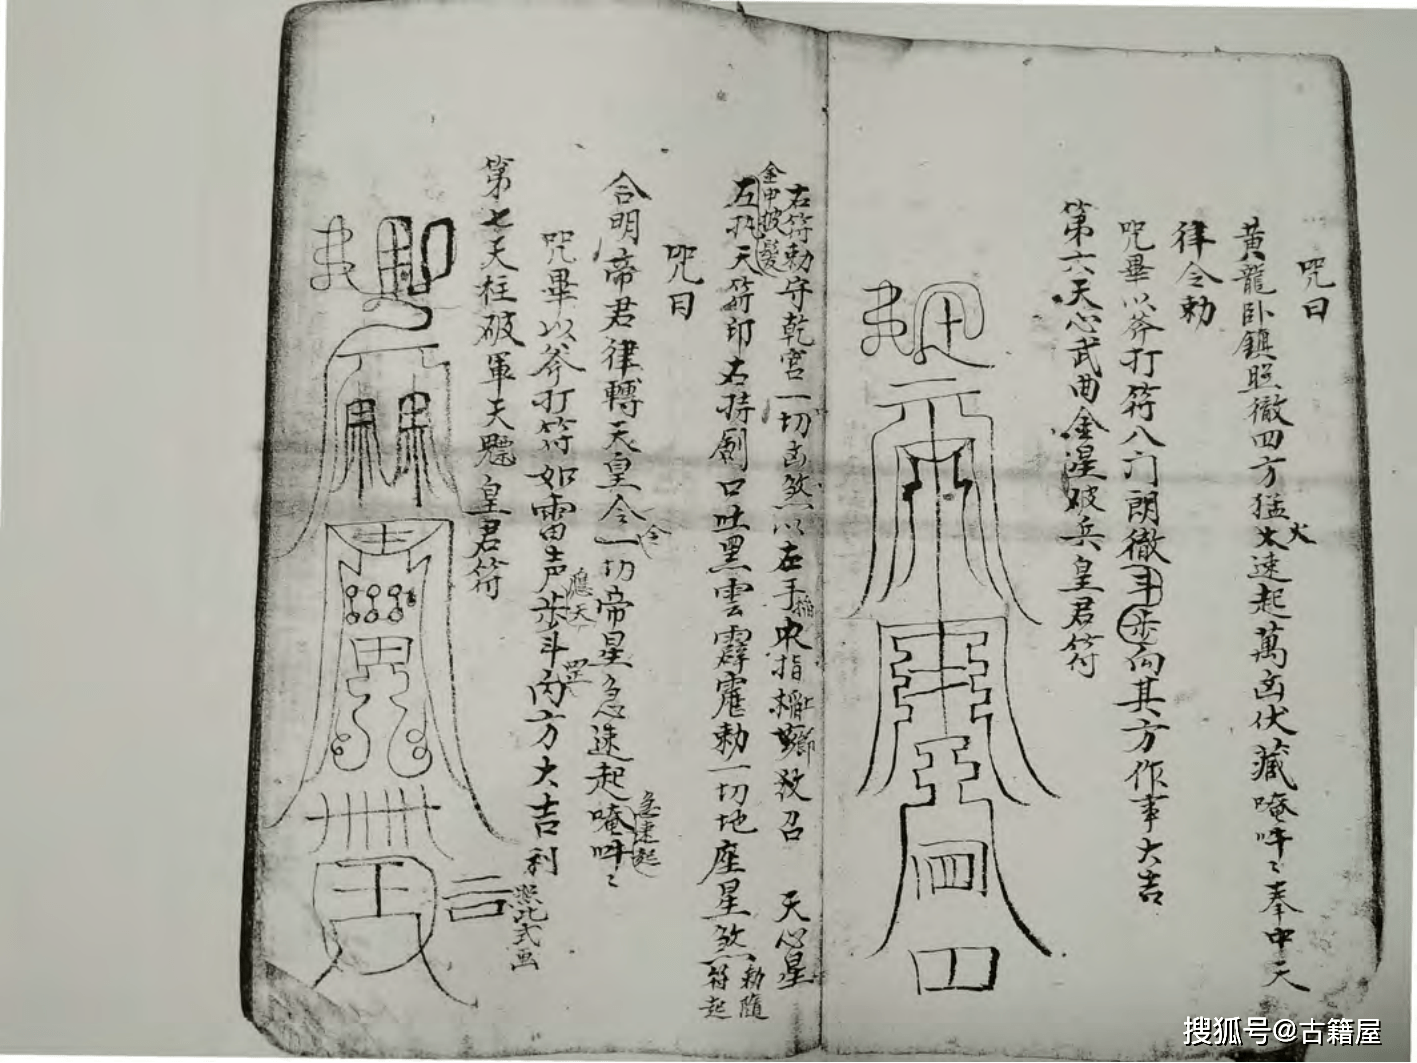 咒曰
黃龍卧鎮照徹四方猛火速起萬凶伏藏唵吽〻奉中天
火
律令勅
咒畢以斧打符八门朗徹斗步向其方作事大吉
第六天心武曲金星破兵皇君符
右符勅守乾宮一切凶煞以左手中指 召 天心星
金甲披髮
左执天符印右持劍口吐黑雲霹靂勅一切地座星煞
勅隨
符起
咒曰
合明帝君律轉天皇令一切帝星急速起唵吽〻
令
急速起
咒畢以斧打符如雷声步斗丙方大吉利
應天
罡
照此式画
第七天柱破軍天 皇君符
搜狐号@古籍屋